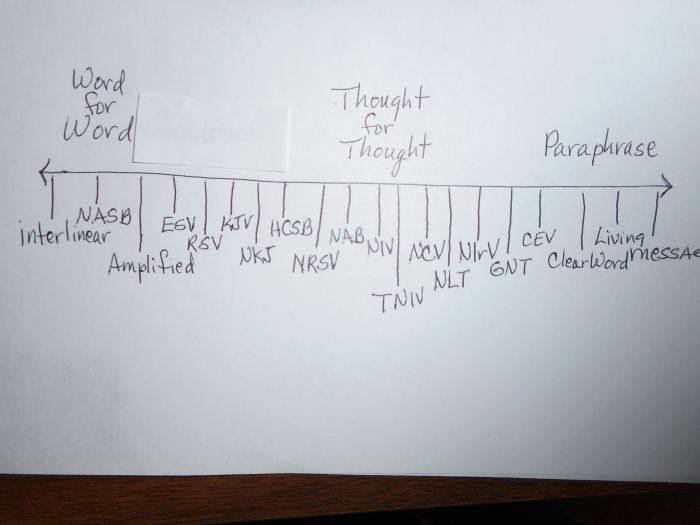 Word
for
Word
Thought
for
Thought
Paraphrase
interlinear
NASB
Amplified
ESV
RSV
KJV
NKJ
HCSB
NRSV
NAB
NIV
TNIV
NCV
NLT
NIrV
GNT
CEV
ClearWord
Living
messAG